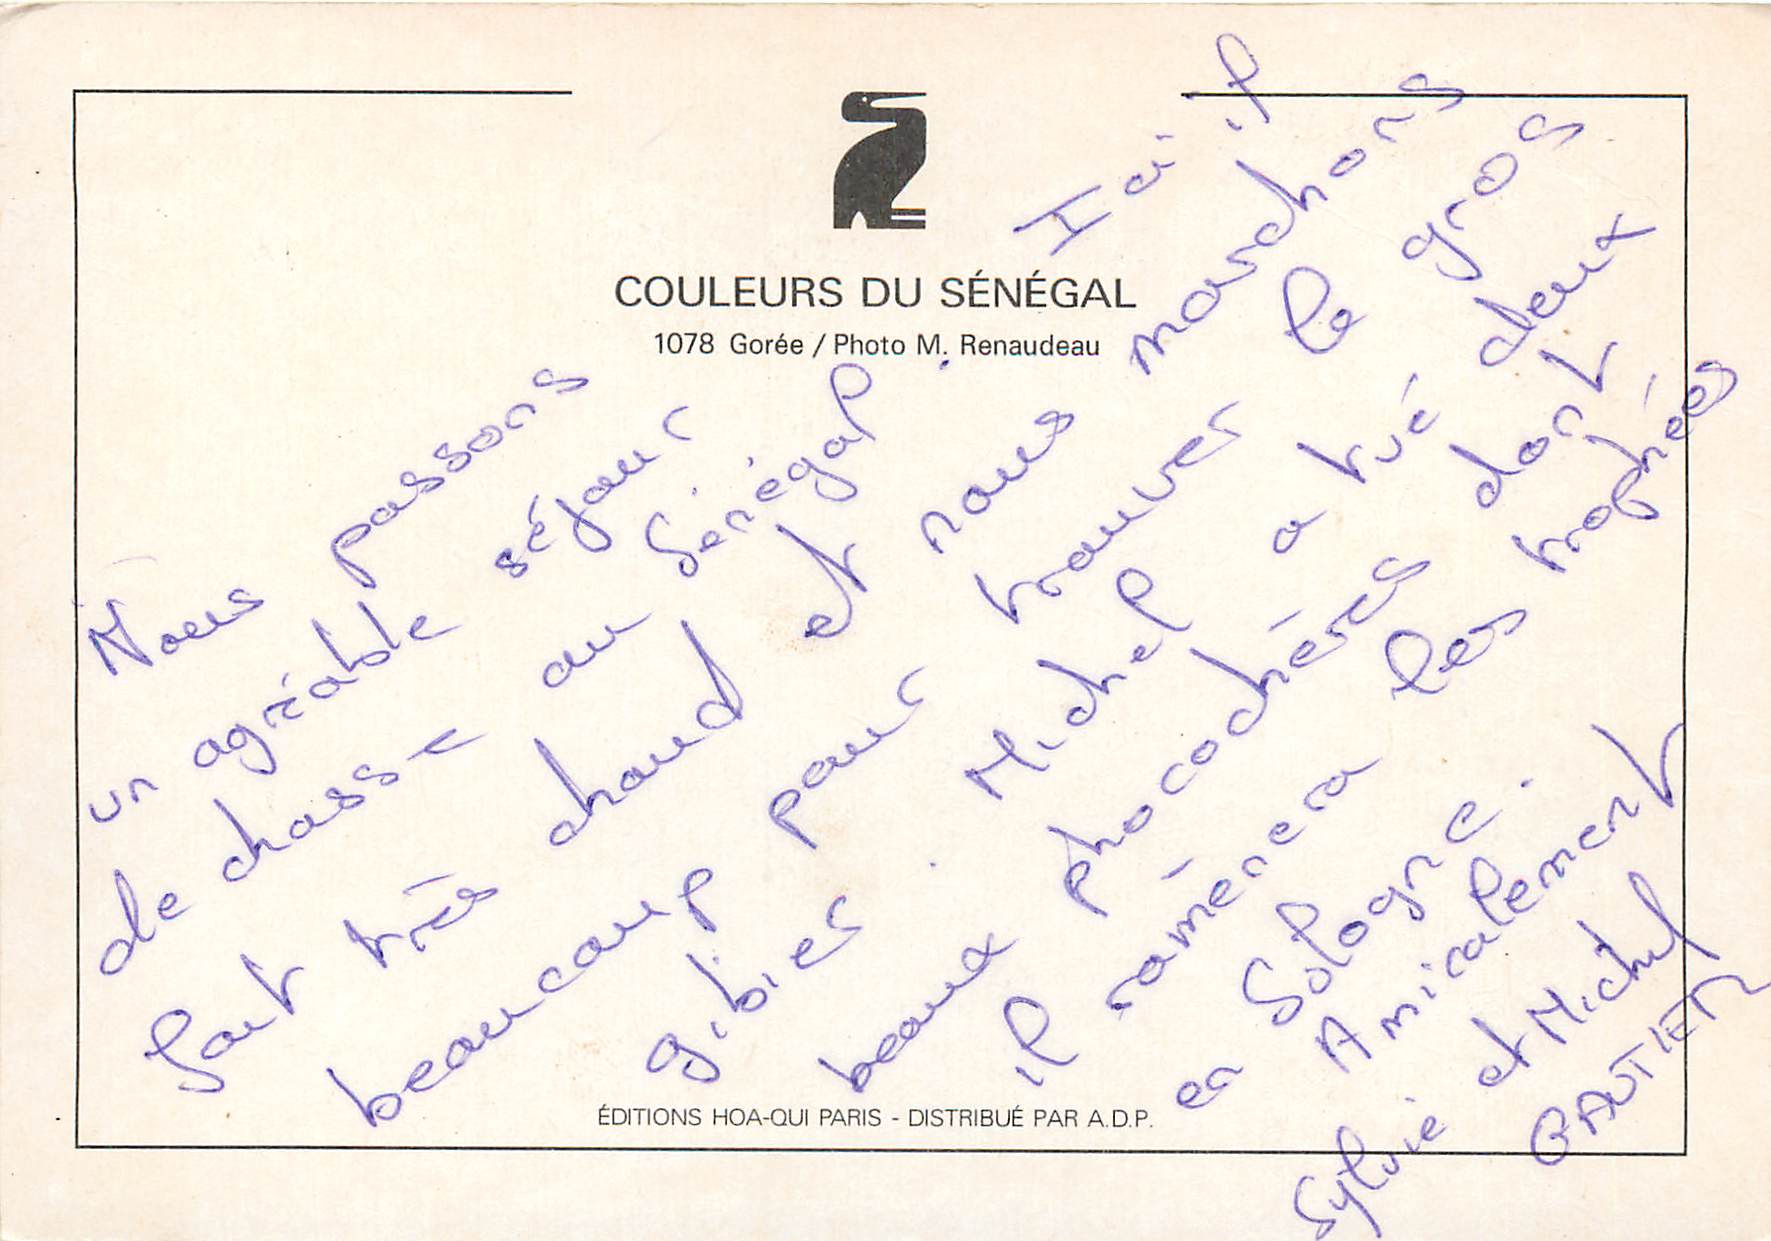 COULEURS DU SÉNÉGAL
1078 Gorée / Photo M. Renaudeau
Nous passons
un agréable séjour
de chasse au Sénégal. Ici il
fait très chaud et nous marchons
beaucoup pour trouver le gros
gibier. Michel a tué deux
beaux phacochères dont
il ramènera les trophées
en Sologne.
Amicalement
Sylvie et Michel
GAUTIER
ÉDITIONS HOA-QUI PARIS - DISTRIBUÉ PAR A.D.P.